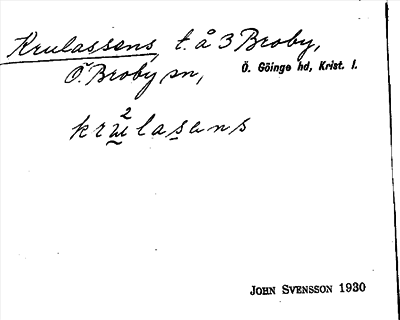 Krulassens, t. å 3 Broby,
Ö. Broby sn, Ö. Göinge hd, Krist. l.
kru²lasens
JOHN SVENSSON 1930